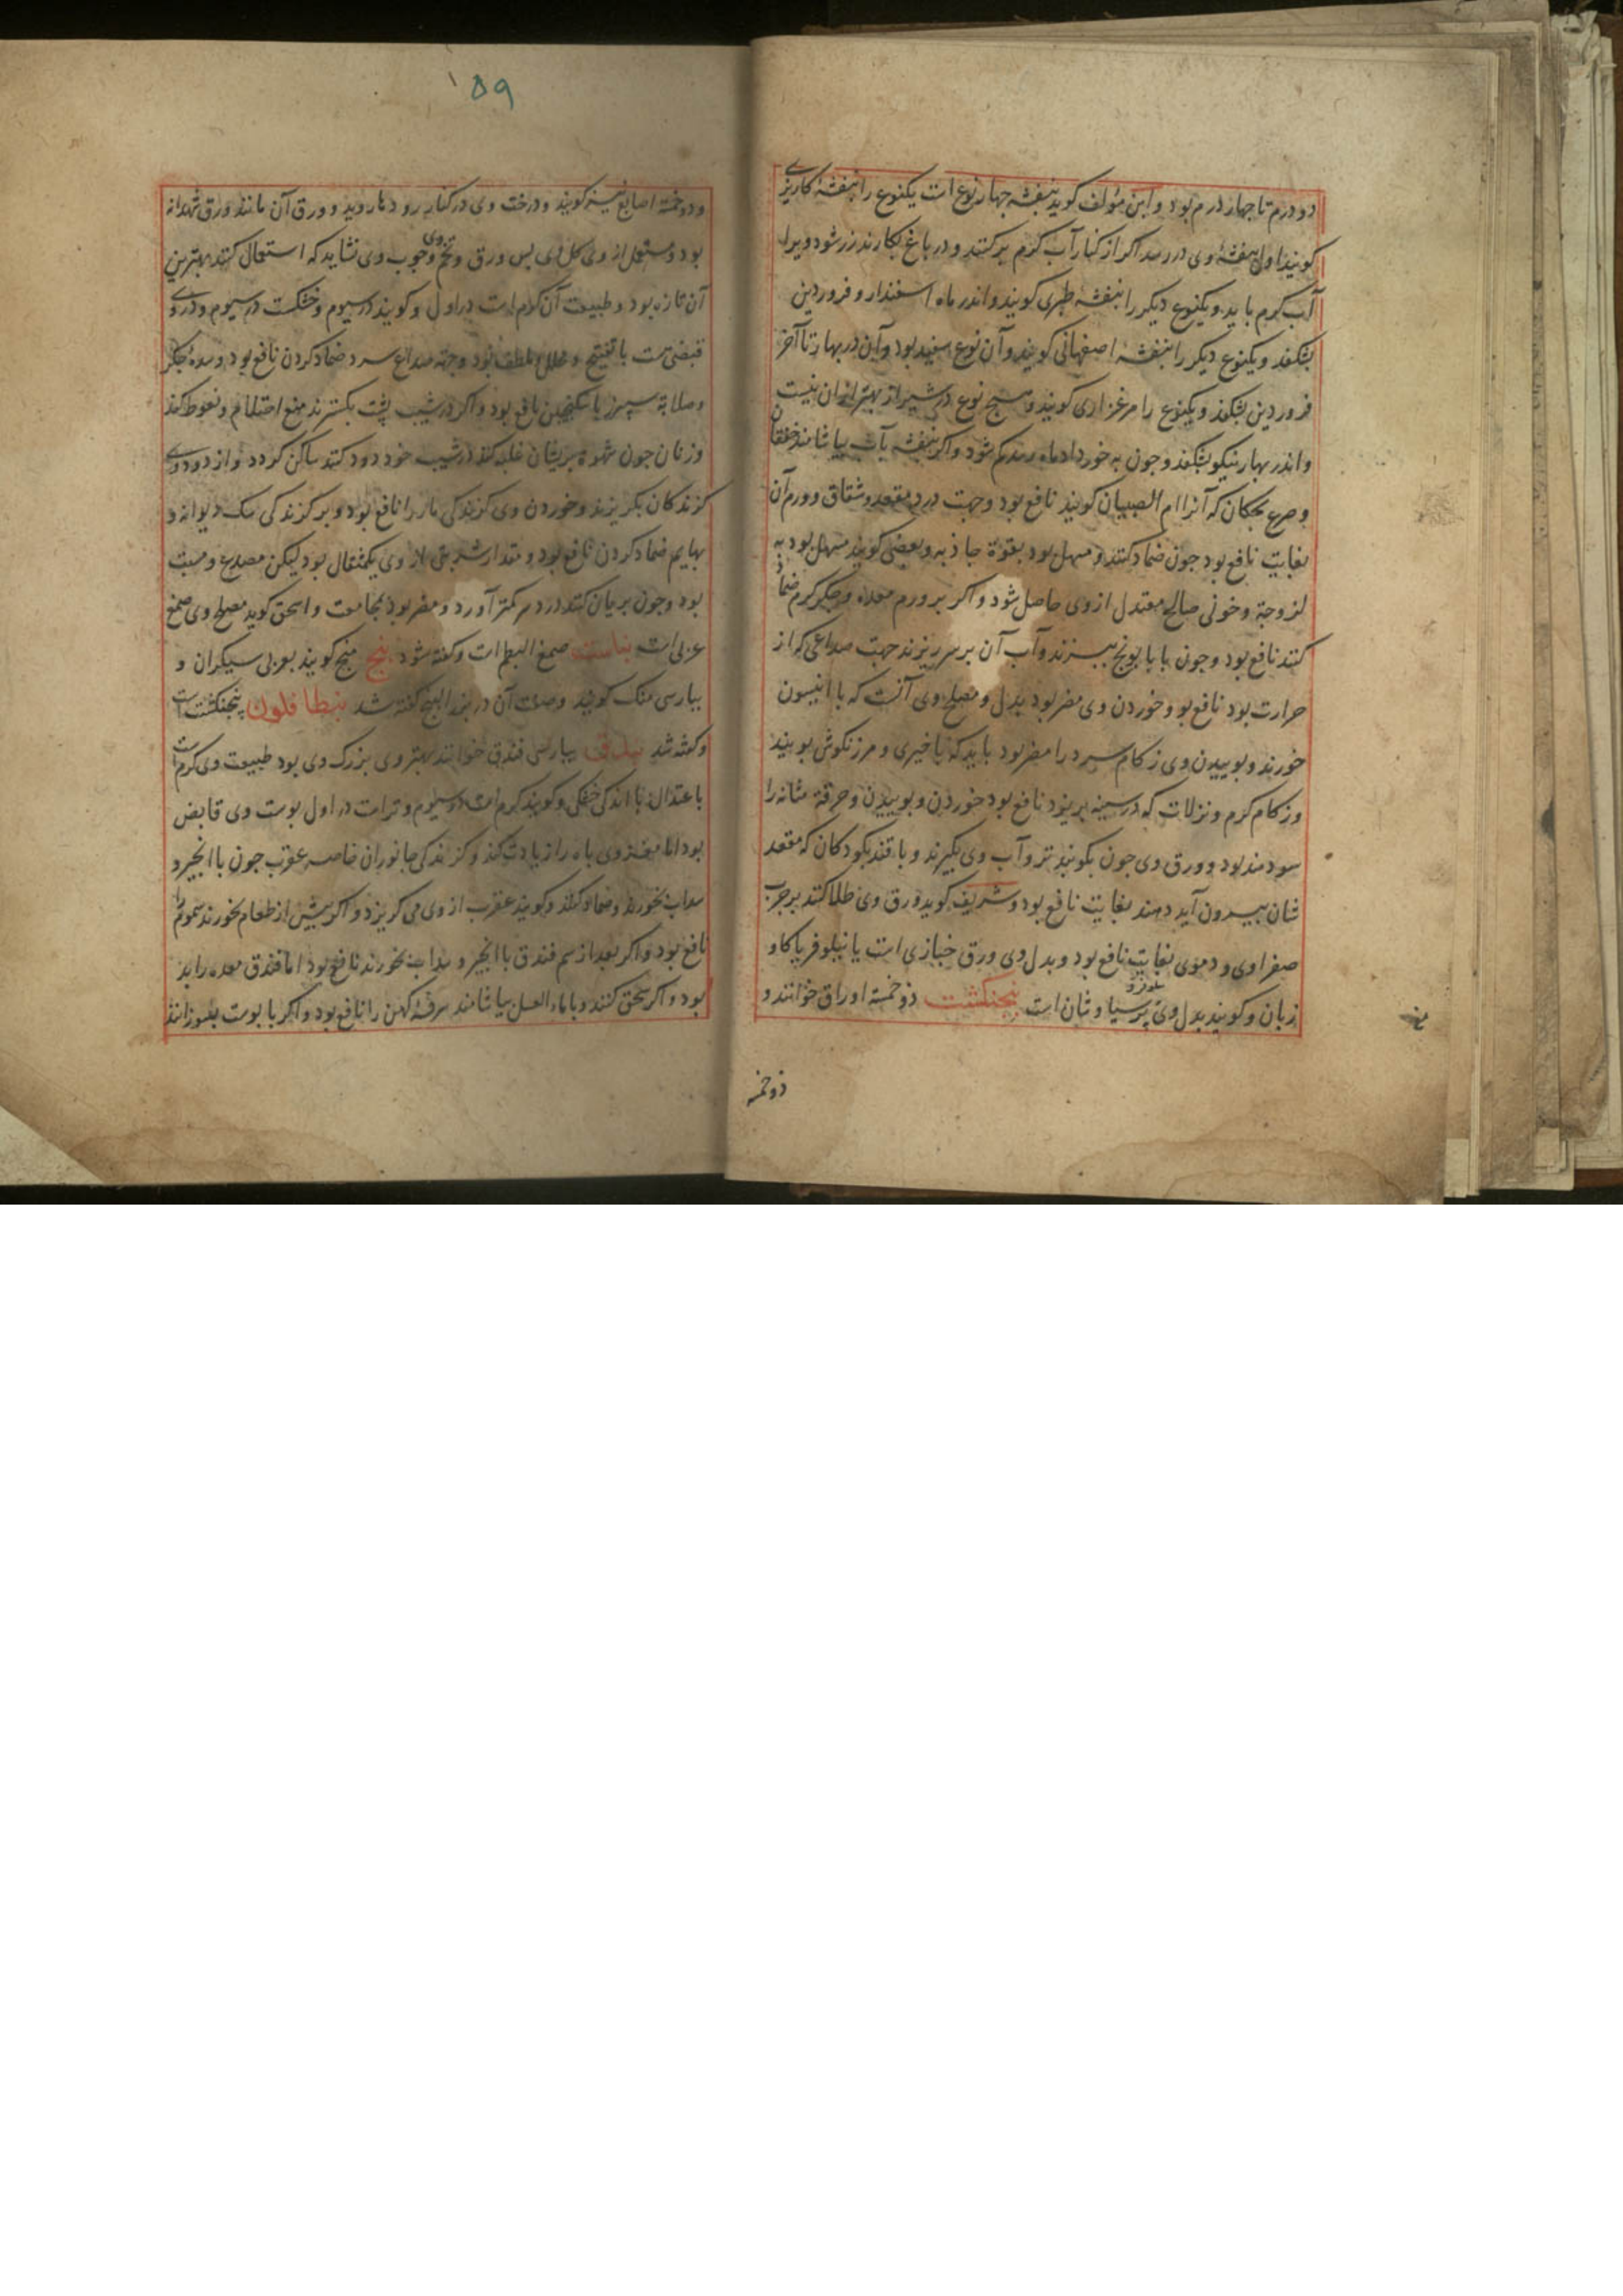 دو درم تا چهار درم بود و ابن مؤلف کوید بنفشه چهار نوع است یکنوع را بنفشهٔ کاریزی
کویند اول بنفشهٔ وی در رسد اکر از کنار آب کرم بر کنند و در باغ بکارند زر شود ویرا
آب کرم باید و یکنوع دیکر را بنفشهٔ طبری کویند و اندر ماه اسفندار و فروردین
بشکفد و یکنوع دیکر را بنفشهٔ اصفهانی کویند و آن نوع سفید بود و آن در بهار تا آخر
فروردین بشکفد و یکنوع را مرغزاری کویند و هیچ نوع در شیراز بهتر از ان نیست
و اندر بهار نیکو بشکفد و چون به خورداد ماه رسد کم شود و اکر بنفشه بآب بیاشامند خفقان
و صرع بچکان که آنرا ام الصبیان کویند نافع بود و جهت درد مقعد و شقاق و ورم آن
بغایت نافع بود چون ضماد کنند و مسهل بود بقوة جاذبه و بعضی کویند مسهل بود به
لزوجة و خونی صالح معتدل از وی حاصل شود و اکر بر ورم معده و جکر کرم ضماد
کنند نافع بود و چون با بابونج بپزند و آب آن بر سر ریزند جهت صداعی که از
حرارت بود نافع بود و خوردن وی مضر بود بدل و مصلح وی آنست که با انیسون
خورند و بوییدن وی زکام سرد را مضر بود باید که با خیری و مرزنکوش بویند
و زکام کرم و نزلات که در سینه بریزد نافع بود خوردن و بوییدن و حرقة مثانه را
سودمند بود و ورق وی چون بکوبند تر و آب وی بکیرند و با قند بکودکان که مقعد
شان بیرون آید دهند بغایت نافع بود و شریف کوید ورق وی طلا کنند بر جرب
صفراوی و دموی بغایت نافع بود و بدل وی ورق خبازی است یا نیلوفر یا کاو
زبان و کویند بدل وی پرسیاوشان است پنجنکشت ذو خمسة اوراق خوانند و
ذو خمسه
۱۵۹
و ذو خمسة اصابع نیز کویند و درخت وی در کنار رودها روید و ورق آن مانند ورق شهدانه
بود و مستعمل از وی کل وی پس ورق و تخم وی و چوب وی نشاید که استعمال کنند بهترین
آن تازه بود و طبیعت آن کرم است در اول و کویند در سیوم و خشکست در سیوم و در وی
قبضی است با تفتیح و محلل و ملطف بود و جهة صداع سرد ضماد کردن نافع بود و سدهٔ جکر
و صلابة سپرز با سکنجبین نافع بود و اکر در شیب پشت بکسترند منع احتلام و نعوظ کند
و زنان چون شهوة بر یشان غلبه کند در شیب خود دود کنند ساکن کردد و از دود وی
کزندکان بکریزند و خوردن وی کزندکی مار را نافع بود و بر کزندکی سک دیوانه و
بهایم ضماد کردن نافع بود و مقدار شربتی از وی یکمثقال بود لیکن مصدع و مسبت
بود و چون بریان کنند درد سر کمتر آورد و مضر بود بمجامعت و اسحق کوید مصلح وی صمغ
عربی است بناست صمغ البطم است و کفته شود بنج منج کویند بعربی سیکران و
بپارسی منک کویند و صفت آن در بذر البنج کفته شد بنطافلون پنجنکشت است
و کفته شد بندق بپارسی فندق خوانند بهتر وی بزرک وی بود طبیعت وی کرم است
باعتدال با اندکی خشکی و کویند کرم است در سیوم و تر است در اول پوست وی قابض
بود اما مغز وی باه را زیادت کند و کزندکی جانوران خاصه عقرب چون با انجیر و
سداب بخورند و ضماد کنند و کویند عقرب از وی می کریزد و اکر پیش از طعام بخورند سموم را
نافع بود و اکر بعد از سم فندق با انجیر و سداب بخورند نافع بود اما فندق معده را بد
بود و اکر سحق کنند و با ماء العسل بیاشامند سرفهٔ کهن را نافع بود و اکر با پوست بسوزانند